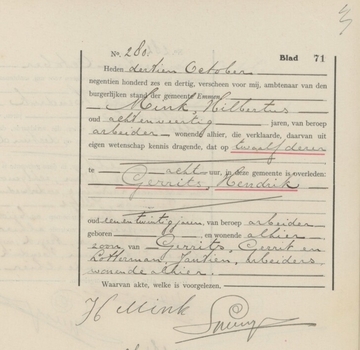 No. 280. Blad 71
Heden dertien October
negentien honderd zes en dertig, verscheen voor mij, ambtenaar van den
burgerlijken stand der gemeente Emmen,
Mink, Hilbertus
oud achtenveertig jaren, van beroep
arbeider wonende alhier, die verklaarde, daarvan uit
eigen wetenschap kennis dragende, dat op twaalf dezer
te acht uur, in deze gemeente is overleden:
Gerrits, Hendrik
oud een en twintig jaren, van beroep arbeider
geboren en wonende alhier
zoon van Gerrits, Geert en
Lotterman, Jantien, arbeiders
wonende alhier.
Waarvan akte, welke is voorgelezen.
H Mink